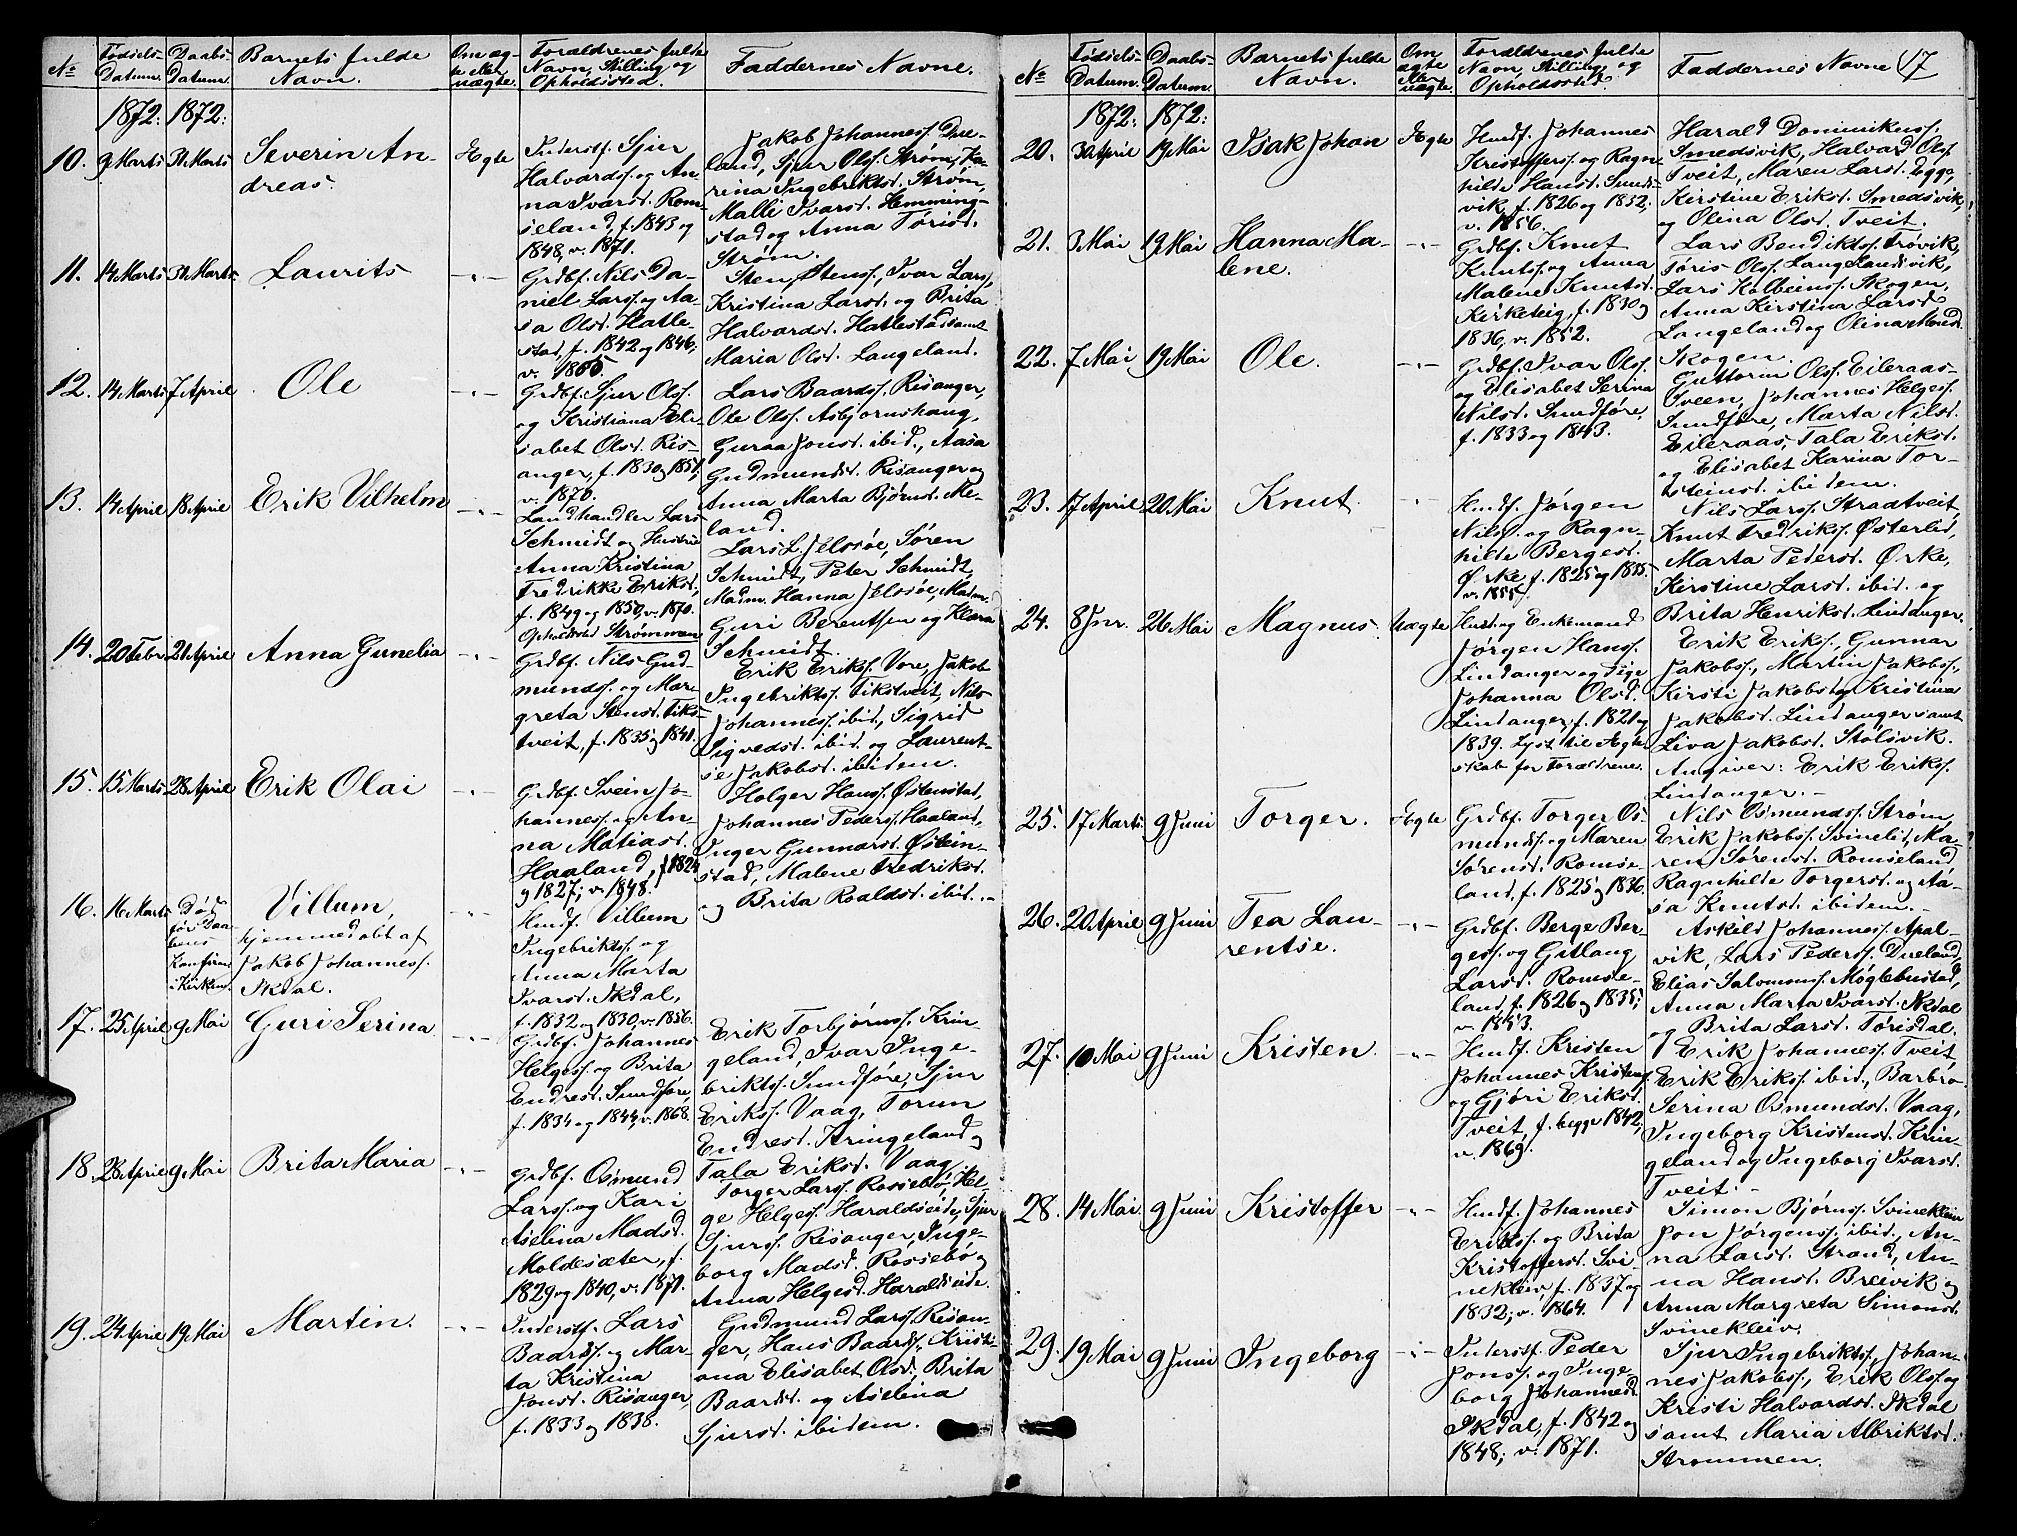 No
Fødsels-
Datum.
Daabs-
Datum.
Barnets fulde
Navn.
Om æg-
te eller
uægte.
Forældrenes fulde
Navn, Stilling og
Opholdssted.
Faddernes Navne.
1872: 1872:
10. 9 Marts 31 Marts
Severin An-
dreas.
Ægte
Inderstf. Sjur
Halvards. og An-
na Ivarsd. Rom-
seland, f. 1843 og
1848, v. 1871.
Jakob Johanness. Due-
land, Sjur Ols. Strøm, Ka-
rina Ingebriktsd. Strøm,
Malli Ivarsd. Hemming-
stad og Anna Tørisd.
Strøm.
11. 14 Marts 31 Marts
Laurits
-"-
Grdbf. Nils Da-
niel Larss. og Aa-
sa Olsd. Hatle-
stad, f. 1842 og 1846,
v. 1865.
Sten Stens., Ivar Lars,
Kristina Larsd. og Brita
Halvardsd. Hatlestad samt
Maria Olsd. Langeland.
12. 14 Marts 7 April
Ole
-"-
Grdbf. Sjur Ols.
og Kristiana Eli-
sabet Olsd. Ris-
anger, f. 1830 og 1851,
v. 1870.
Lars Baards. Risanger,
Ole Ols. Asbjørnshaug,
Guraa Jonsd. ibid., Aasa
Gudmundsd. Risanger og
Anna Marta Bjørnsd. Me-
land.
13. 14 April 18 April
Erik Vilhelm
-"-
Landhandler Lars
Schmidt og Hustru
Anna Kristina
Fredrikke Eriksd.
f. 1849 og 1850, v. 1870.
Opholdssted Strømmen
Lars L. Jelsøe, Søren
Schmidt, Peter Schmidt,
Madm. Hanna Jelsøe, Madm.
Guri Berentsen og Klara
Schmidt.
14. 20 Febr. 21 April
Anna Gunelia
-"-
Grdbf. Nils Gud-
munds. og Mar-
greta Stensd. Tiks-
tveit, f. 1835 og 1841.
Erik Eriks. Vore, Jakob
Ingebrikts. Tikstveit, Nils
Johanness. ibid., Sigrid
Sigvedsd. ibid. og Laurent-
se Jakobsd. ibidem.
15. 15 Marts 28 April
Erik Olai
-"-
Grdbf. Svein Jo-
hanness. og An-
na Matiasd.
Haaland, f. 1824
og 1827; v. 1848.
Holger Hans. Østenstad,
Johannes Peders. Haaland,
Inger Gunnarsd. Østein-
stad, Malene Fredriksd.
og Brita Roaldsd. ibid. -
16. 16 Marts
Død
før Daa-
bens
Konfirm.
i Kirken.
Villum,
hjemmedøbt af
Jakob Johanness.
Ækdal.
-"-
Husmf. Villum
Ingebrikts. og
Anna Marta
Ivarsd. Ækdal,
f. 1832 og 1830, v. 1856.
17. 25 April 9 Mai
Guri Serina
-"-
Grdbf. Johannes
Helges. og Brita
Endresd. Sundføre,
f. 1834 og 1844, v. 1868.
Erik Torbjørns. Krin-
geland, Ivar Inge-
brikts. Sundføre, Sjur
Eriks. Vaag, Torun
Endresd. Kringeland og
Tala Eriksd. Vaag.
18. 28 April 9 Mai
Brita Maria
-"-
Grdbf. Osmund
Lars. og Kari
Aselina Madsd.
Moldesæter, f.
1829 og 1840, v. 1871.
Torger Lars. Rossebø, Hel-
ge Helges. Haraldseide, Sjur
Sjurs. Risanger, Inge-
borg Madsd. Rossebø og
Anna Helgesd. Haraldseide.
19. 24 April 19 Mai
Martin.
-"-
Inderstf. Lars
Baards. og Mar-
ta Kristina
Jonsd. Risanger,
f. 1833 og 1838.
Gudmund Lars. Risan-
ger, Hans Baards., Kristi-
ana Elisabet Olsd., Brita
Baardsd. og Aselina
Sjursd. ibidem.
No
Fødsels-
Datum.
Daabs-
Datum.
Barnets fulde
Navn.
Om
ægte
eller
uægte.
Forældrenes fulde
Navn, Stilling og
Opholdssted.
Faddernes Navne
17
1872: 1872:
20. 30 April 19 Mai
Isak Johan
Ægte
Husmf. Johannes
Kristoffers. og Ragn-
hilde Hansd. Smeds-
vik, f. 1826 og 1832,
v. 1856.
Harald Dominikuss.
Smedsvik, Halvard Ols.
Tveit, Maren Larsd. Egge,
Kirstine Eriksd. Smedsvik,
og Olina Olsd. Tveit.
21. 3 Mai 19 Mai
Hanna Ma-
lene.
-"-
Grdbf. Knut
Knuts. og Anna
Malene Knutsd.
Kirketeig, f. 1830 og
1836, v. 1852.
Lars Bendikts. Trovik,
Tøris Ols. Langelandsvik,
Lars Kolbeins. Skogen,
Anna Kirstina Larsd.
Langeland og Olina Monsd.
Skogen.
22. 7 Mai 19 Mai
Ole.
-"-
Grdbf. Ivar Ols.
og Elisabet Serina
Nilsd. Sundføre,
f. 1833 og 1843.
Guttorm Ols. Eileraas-
Sveen, Johannes Helges.
Sundføre, Marta Nilsd.
Eileraas, Tala Eriksd.
og Elisabet Karina Tor-
steinsd. ibidem.
23. 17 April 20 Mai
Knut
-"-
Husmf. Jørgen
Nils. og Ragn-
hilde Bergesd.
Ørke, f. 1825 og 1835
v. 1855.
Nils Lars. Straatveit,
Knut Fredriks. Østerlid,
Marta Pedersd. Ørke,
Kirstine Larsd. ibid. og
Brita Henriksd. Lindanger.
24. 8 Jnr. 26 Mai
Magnus
Uægte
Husm. og Enkemand
Jørgen Hans.
Lindanger og Pige
Johanna Olsd.
Lindanger, f. 1821 og
1839. Lyst til Ægte-
skab for Forældrene.
Erik Eriks., Gunnar
Jakobs., Martin Jakobs.,
Kirsti Jakobsd. og Kristina
Jakobsd. Lindanger samt
Liva Jakobsd. Stølsvik.
Angiver: Erik Eriks.
Lindanger. -
25. 17 Marts 9 Juni
Torger.
Ægte
Grdbf. Torger Os-
munds. og Maren
Sørensd. Romse-
land, f. 1825 og 1836.
Nils Osmunds. Strøm,
Erik Jakobs. Svinelid, Ma-
ren Sørensd. Romseland,
Ragnhilde Torgersd. og Aa-
sa Knutsd. ibidem. -
26. 20 April 9 Juni
Tea Lau-
rentse.
-"-
Grdbf. Berge Ber-
ges. og Gitlaug
Larsd. Romse-
land, f. 1826 og 1835;
v. 1853.
Askild Johanness. Apal-
vik, Lars Peders. Dueland,
Elias Salomons. Møglebustad,
Anna Marta Ivarsd. Ækdal
og Brita Larsd. Tørisdal.
27. 10 Mai 9 Juni
Kristen.
-"-
Husmf. Kristen
Johannes Kristens.
og Gjøri Eriksd.
Tveit, f. begge 1842,
v. 1869.
Erik Johanness. Tveit,
Erik Eriks. ibid., Barbro
Serina Osmundsd. Vaag,
Ingeborg Kristensd. Krin-
geland og Ingeborg Ivarsd.
Tveit. -
28. 14 Mai 9 Juni
Kristoffer
-"-
Husmf. Johannes
Eriks. og Brita
Kristoffersd. Svi-
nekleiv, f. 1837 og
1832; v. 1864.
Simon Bjørns. Svinekleiv
Jon Jørgens. ibid., An-
na Larsd. Strand, An-
na Hansd. Breivik og
Anna Margreta Simonsd.
Svinekleiv.
29. 19 Mai 9 Juni
Ingeborg
-"-
Inderstf. Peder
Jons. og Inge-
borg Johannesd.
Ækdal, f. 1842 og
1848; v. 1871.
Sjur Ingebrikts., Johan-
nes Jakobs., Erik Ols. og
Kristi Halvardsd. Ækdal
samt Maria Albriktsd.
Strømmen.